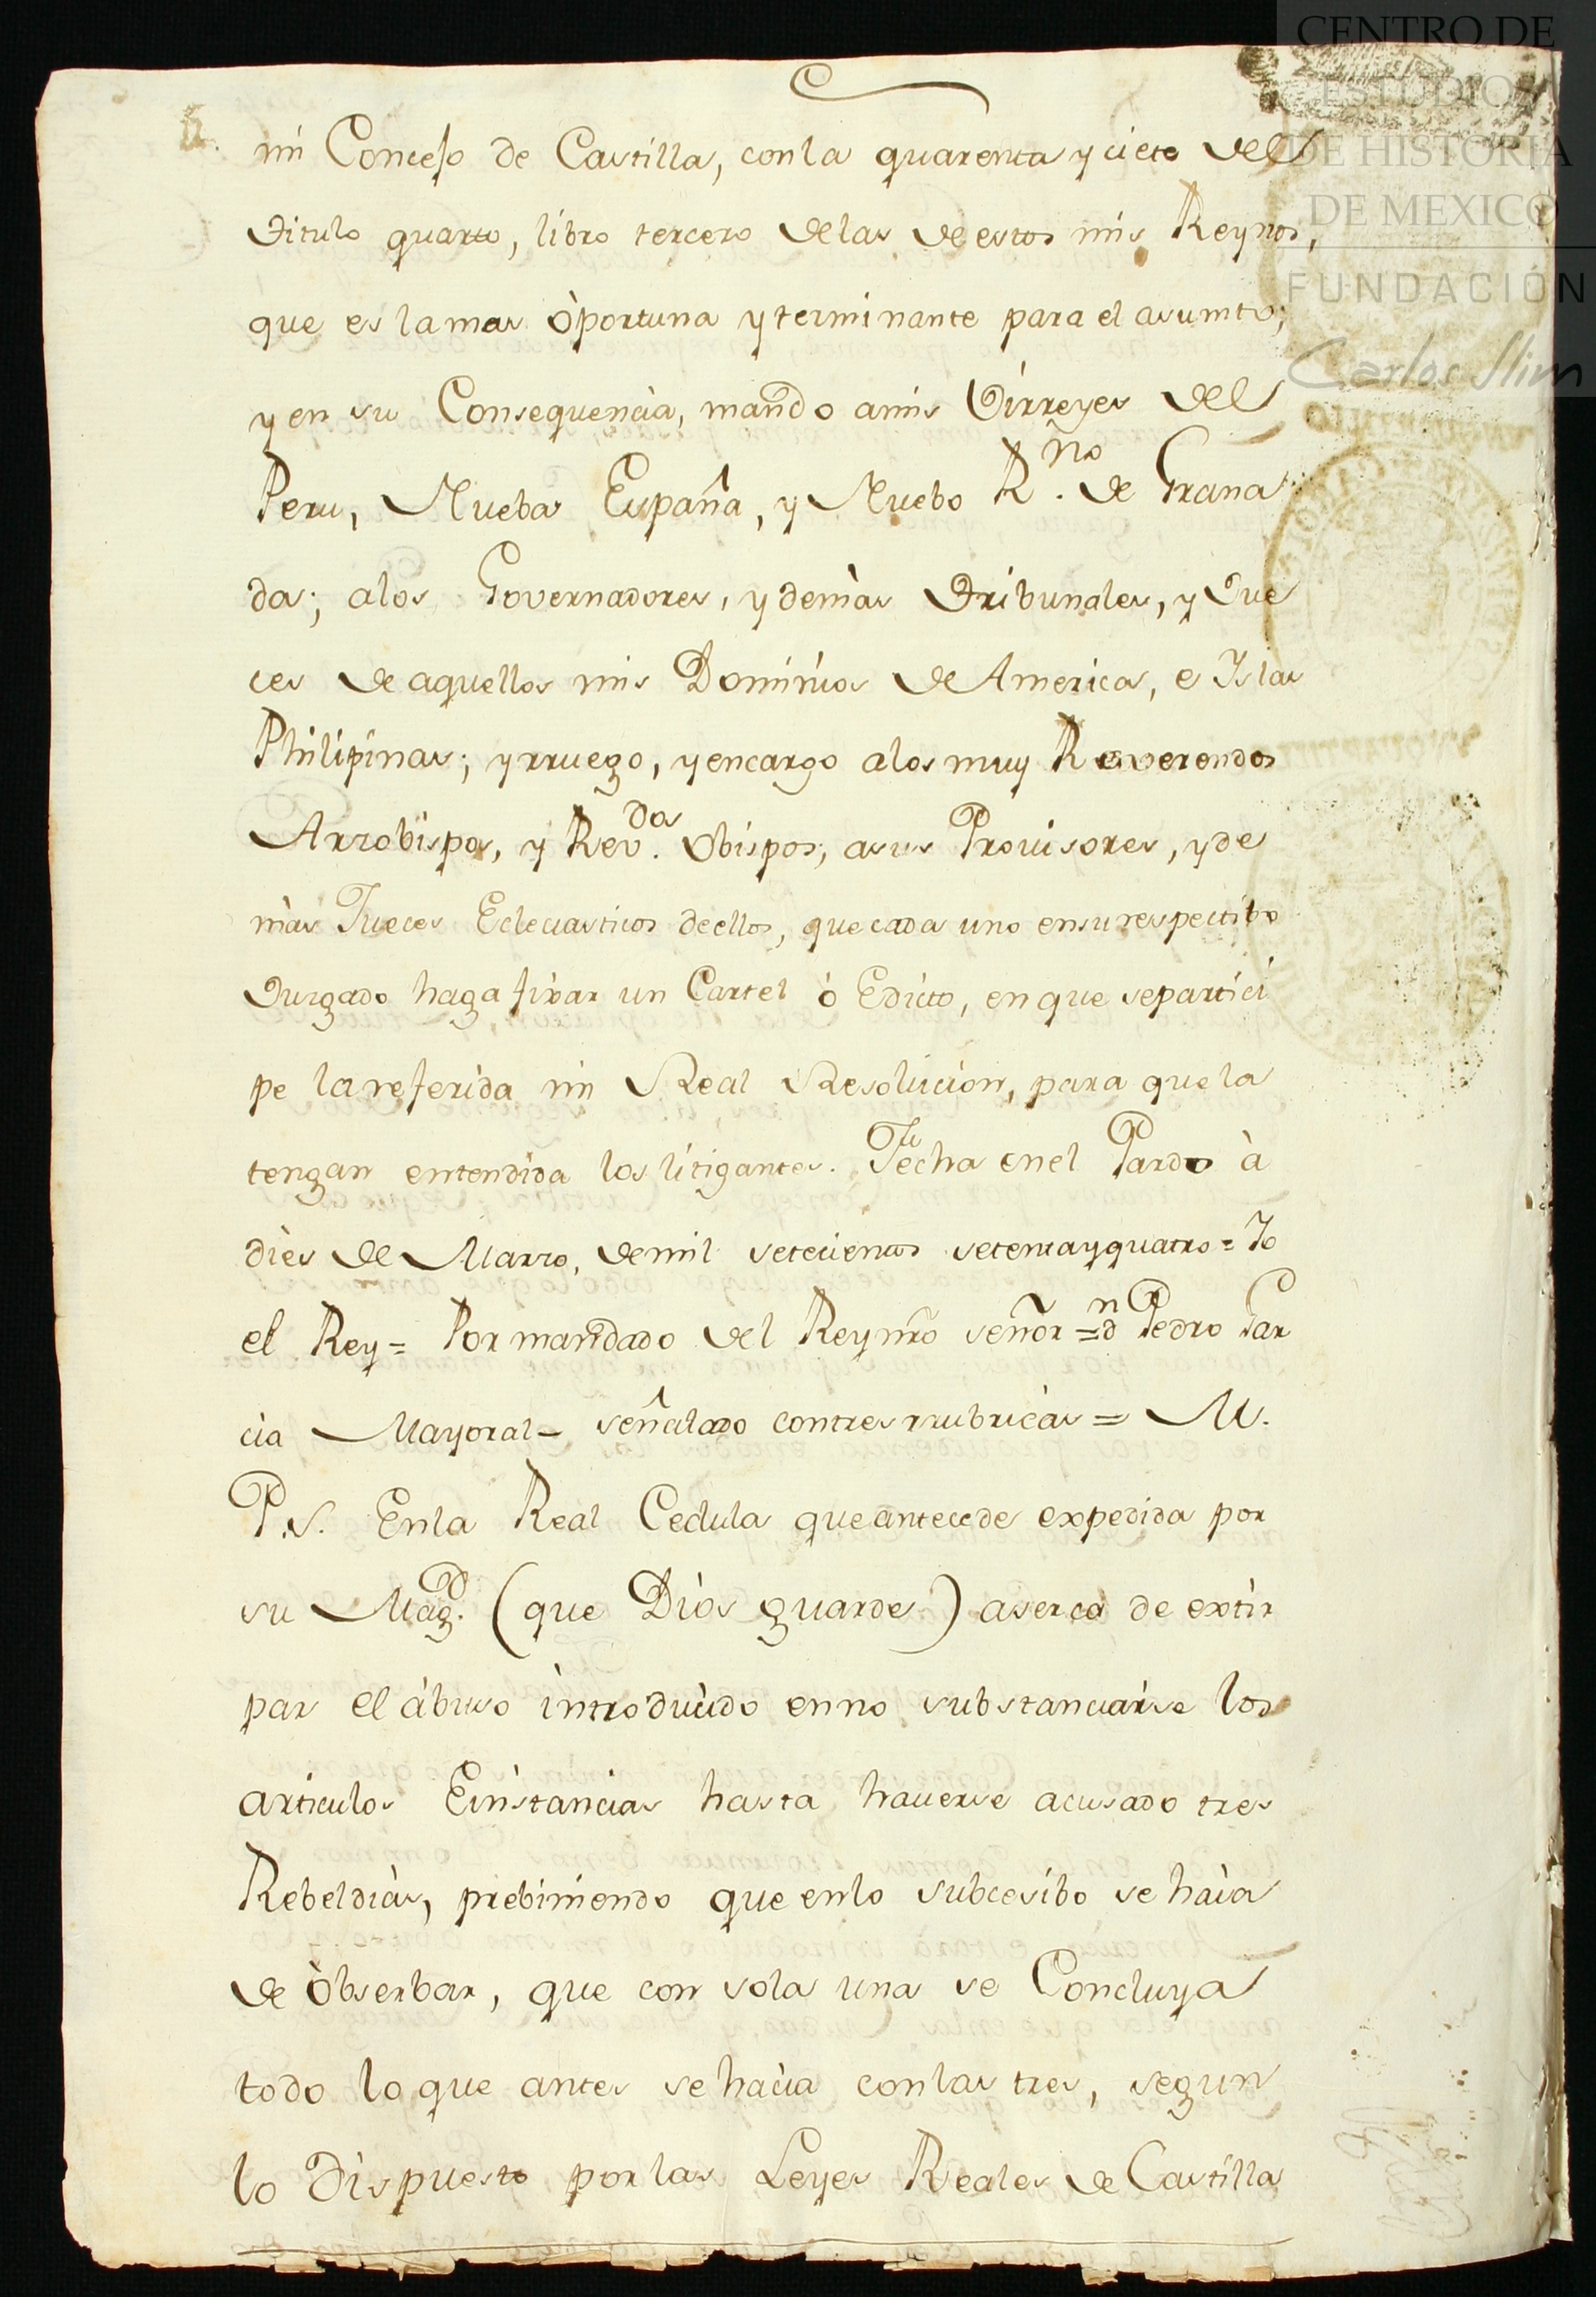 CENTRO DE
ESTUDIOS
DE HISTORIA
DE MEXICO
FUNDACIÓN
Carlos Slim
mi Concejo de Castilla, con la quarenta y ciete del
titulo quarto, libro tercero de las de estos mis Reynos,
que es la mas òportuna y terminante para el asumto;
y en su Consequencia, mando a mis Virreyes del
Peru, Nueba España, y Nuebo R.no de Grana
da; a los Governadores, y demàs Tribunales, y Jue
ces de aquellos mis Dominios de America, e Yslas
Philipinas; y rruego, y encargo a los muy Reverendos
Arzobispos, y Rev.dos Obispos; a sus Provisores, y de
màs Jueces Ecleciasticos de ellos, que cada uno en su respectibo
Juzgado haga fixar un Cartel ò Edicto, en que se partici
pe la referida mi Real Resolucion, para que la
tengan entendida los litigantes. Fecha en el Pardo à
dies de Marzo, de mil setecientos setenta y quatro = Yo
el Rey = Por mandado del Rey nr̃o señor = dn Pedro Gar
cia Mayoral = señalado con tres rrubricas = M.
P. S. En la Real Cedula que antecede expedida por
su Mag.d (que Diòs guarde) aserca de extir
par el ábuso introducido en no substanciarse los
articulos E instancias hasta haverse acusado tres
Rebeldias, prebiniendo que en lo subcesibo se haia
de òbserbar, que con sola una se Concluya
todo lo que antes se hacia con las tres, segun
lo Dispuesto por las Leyes Reales de Castilla